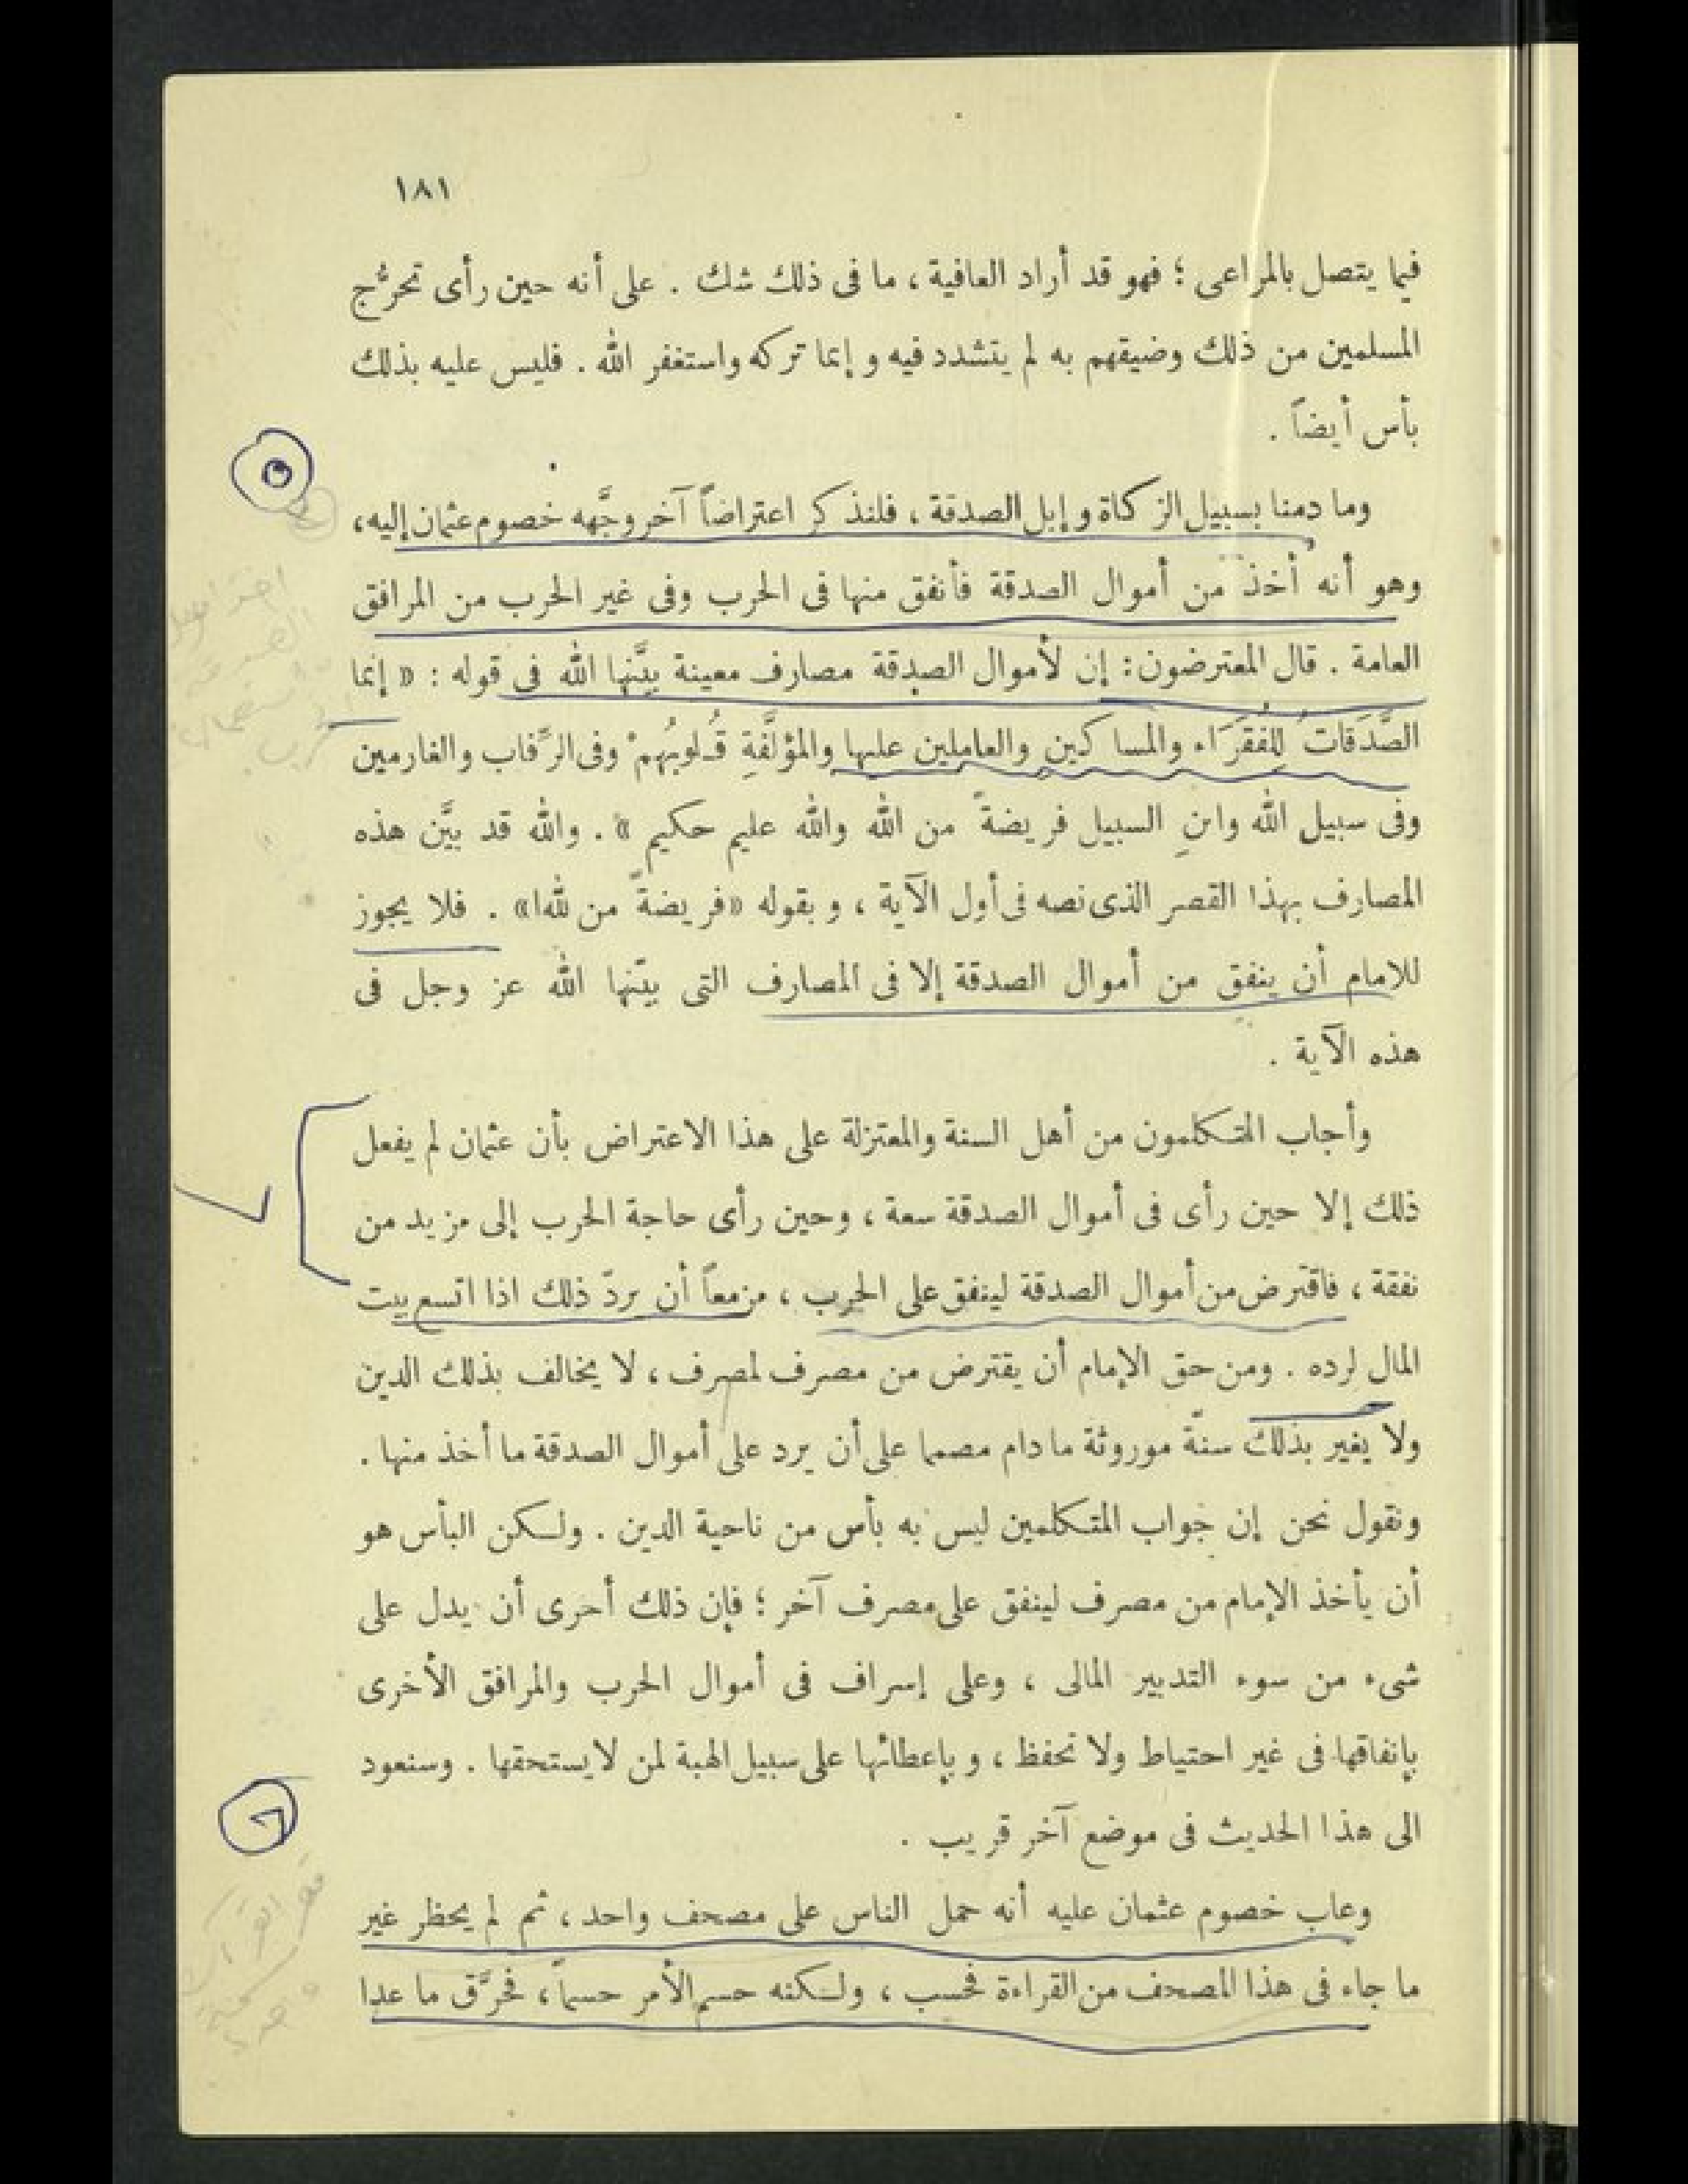 ١٨١
فيما يتصل بالمراعى ؛ فهو قد أراد العافية ، ما فى ذلك شك . على أنه حين رأى تحرُّج
المسلمين من ذلك وضيقهم به لم يتشدد فيه وإنما تركه واستغفر الله . فليس عليه بذلك
بأس أيضاً .
وما دمنا بسبيل الزكاة وإبل الصدقة ، فلنذكر اعتراضاً آخر وجَّهه خصوم عثمان إليه ،
وهو أنه أخذ من أموال الصدقة فأنفق منها فى الحرب وفى غير الحرب من المرافق
العامة . قال المعترضون : إن لأموال الصدقة مصارف معينة بيَّنها الله فى قوله : « إنما
الصَّدَقَاتُ لِلفُقَرَاء والمساكين والعاملين عليها والمؤلَّفَةِ قُلوبُهمْ وفى الرِّقاب والغارمين
وفى سبيل الله وابنِ السبيل فريضةً من الله والله عليم حكيم » . والله قد بيَّن هذه
المصارف بهذا القصر الذى نصه فى أول الآية ، وبقوله «فريضةً من لله‌ا» . فلا يجوز
للامام أن ينفق من أموال الصدقة إلا فى المصارف التى بيّنها الله عز وجل فى
هذه الآية .
وأجاب المتكلمون من أهل السنة والمعتزلة على هذا الاعتراض بأن عثمان لم يفعل
ذلك إلا حين رأى فى أموال الصدقة سعة ، وحين رأى حاجة الحرب إلى مزيد من
نفقة ، فاقترض من أموال الصدقة لينفق على الحرب ، مزمعاً أن يردّ ذلك اذا اتسع بيت
المال لرده . ومن حق الإمام أن يقترض من مصرف لمصرف ، لا يخالف بذلك الدين
ولا يغير بذلك سنّة موروثة ما دام مصمما على أن يرد على أموال الصدقة ما أخذ منها .
ونقول نحن إن جواب المتكلمين ليس به بأس من ناحية الدين . ولكن البأس هو
أن يأخذ الإمام من مصرف لينفق على مصرف آخر ؛ فإن ذلك أحرى أن يدل على
شىء من سوء التدبير المالى ، وعلى إسراف فى أموال الحرب والمرافق الأخرى
بإنفاقها فى غير احتياط ولا تحفظ ، وبإعطائها على سبيل الهبة لمن لا يستحقها . وسنعود
الى هذا الحديث فى موضع آخر قريب .
وعاب خصوم عثمان عليه أنه حمل الناس على مصحف واحد ، ثم لم يحظر غير
ما جاء فى هذا المصحف من القراءة فحسب ، ولكنه حسم الأمر حسماً ، فحرَّق ما عدا
٥
٦